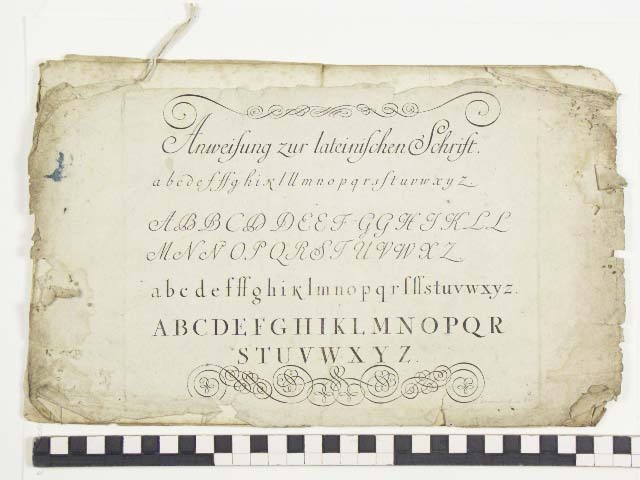 Anweiſung zur lateiniſchen Schrift.
a b c d e f ff g h i k l ll m n o p q r s ſ t u v w x y z
A B B C D D E E F G G H I K L L
M N N O P Q R S T U V W X Z
a b c d e f ff g h i k l m n o p q r ſ ſſ s t u v w x y z.
A B C D E F G H I K L M N O P Q R
S T U V W X Y Z.